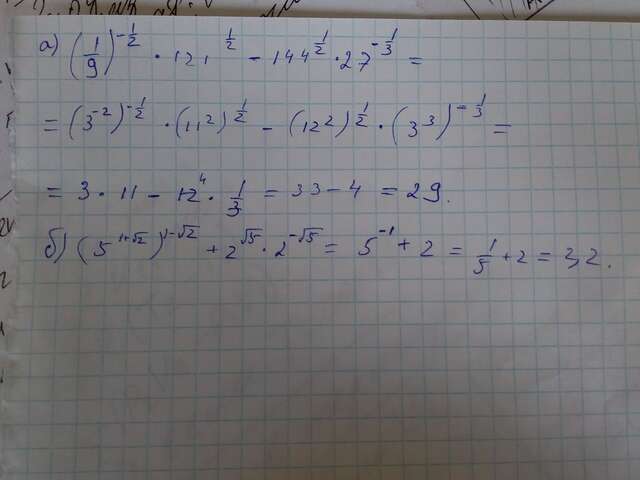 а) (1/9)^(-1/2) · 121^(1/2) - 144^(1/2) · 27^(-1/3) =
= (3^(-2))^(-1/2) · (11²)^(1/2) - (12²)^(1/2) · (3³)^(-1/3) =
= 3 · 11 - 12⁴ · 1/3 = 33 - 4 = 29.
б) (5^(1+√2))^(1-√2) + 2^(√5) · 2^(-√5) = 5^(-1) + 2 = 1/5 + 2 = 3,2.